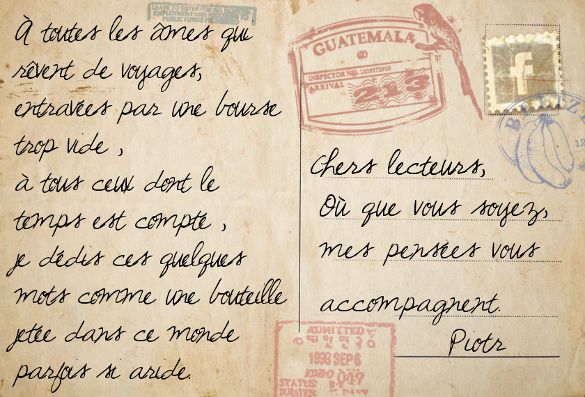 LEAVE TO ENTER FOR
EMPLOYMENT PAID
PUBLIC FUNDS
À toutes les âmes qui
rêvent de voyages,
entravées par une bourse
trop vide,
à tous ceux dont le
temps est compté,
je dédis ces quelques
mots comme une bouteille
jetée dans ce monde
parfois si aride.
GUATEMALA
(2)
INSPECTOR NO.
ARRIVAL
213
f
Chers lecteurs,
Où que vous soyez,
mes pensées vous
accompagnent.
Piotr
ADMITTED
1998 SEP 6
047
STATUS
DURATION